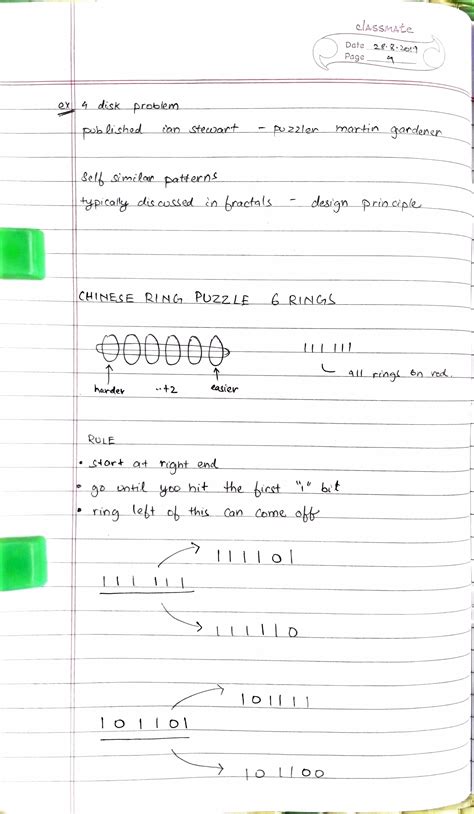 classmate
Date 28.8.2019
Page 9
ex 4 disk problem
published ian stewart - puzzler martin gardener
self similar patterns
typically discussed in fractals - design principle
CHINESE RING PUZZLE 6 RINGS
111 111
all rings on rod.
harder ..+2 easier
RULE
• start at right end
• go until you hit the first "1" bit
• ring left of this can come off
111101
111 111
111110
101111
101101
101100